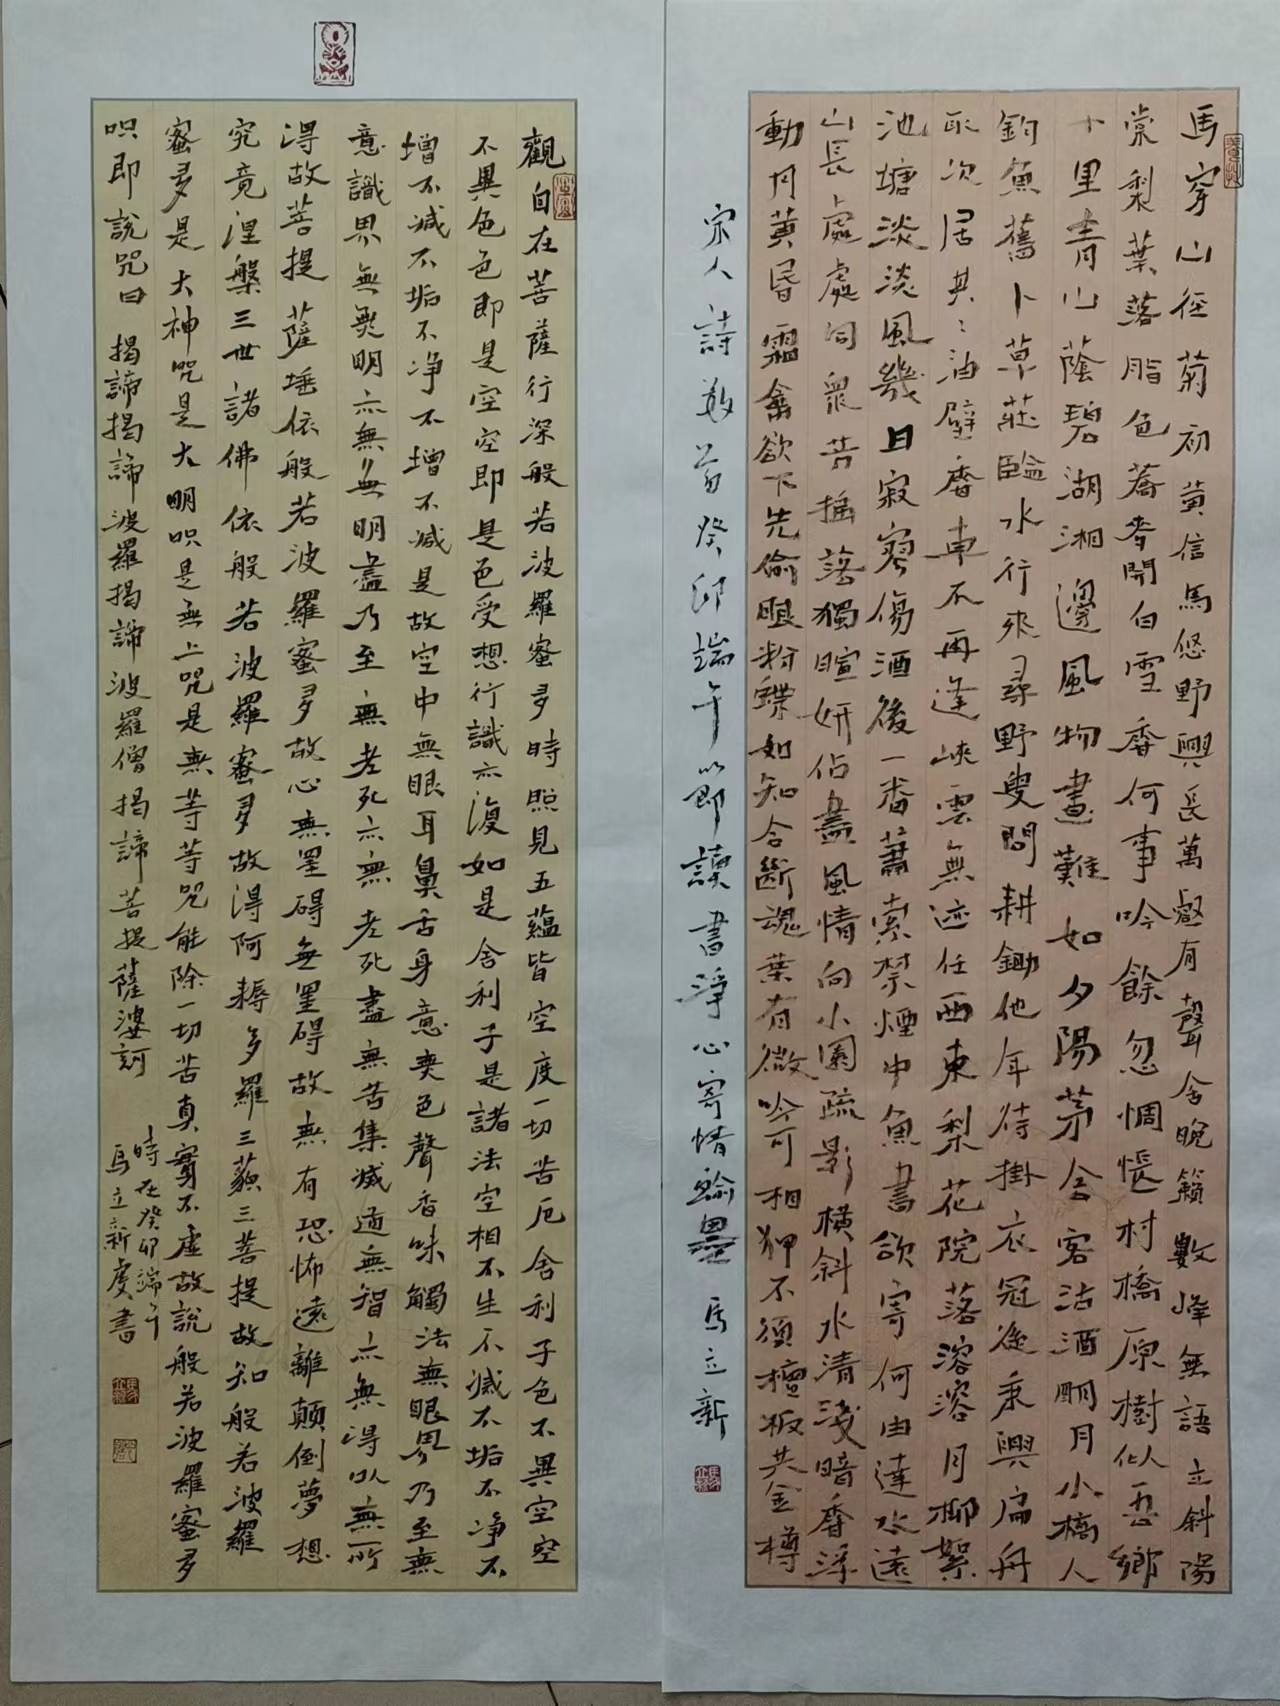 馬穿山徑菊初黃信馬悠野興長萬壑有聲含晚籟數峰無語立斜陽
棠梨葉落脂色蕎麥開白雪香何事吟餘忽惆悵村橋原樹似吾鄉
十里青山蔭碧湖湘邊風物畫難如夕陽茅舍客沽酒明月小橋人
釣魚舊卜草莊臨水行來尋野叟問耕鋤他年待掛衣冠後乘興扁舟
取次居其〻油壁香車不再逢峽雲無迹任西東梨花院落溶溶月柳絮
池塘淡淡風幾日寂寥傷酒後一番蕭索禁煙中魚書欲寄何由達水遠
山長〻處處同衆芳搖落獨暄妍佔盡風情向小園疏影橫斜水清淺暗香浮
動月黃昏霜禽欲下先偷眼粉蝶如知合斷魂葉有微吟可相狎不須檀板共金樽
宋人詩數首癸卯端午節讀書淨心寄情翰墨 馬立新
觀自在菩薩行深般若波羅蜜多時照見五蘊皆空度一切苦厄舍利子色不異空空
不異色色即是空空即是色受想行識亦復如是舍利子是諸法空相不生不滅不垢不净不
增不減不垢不净不增不減是故空中無眼耳鼻舌身意無色聲香味觸法無眼界乃至無
意識界無無明亦無無明盡乃至無老死亦無老死盡無苦集滅道無智亦無得以無所
得故菩提薩埵依般若波羅蜜多故心無罣碍無罣碍故無有恐怖遠離顛倒夢想
究竟涅槃三世諸佛依般若波羅蜜多故得阿耨多羅三藐三菩提故知般若波羅
蜜多是大神咒是大明呪是無上咒是無等等咒能除一切苦真實不虛故說般若波羅蜜多
呪即說咒曰 揭諦揭諦波羅揭諦波羅僧揭諦菩提薩婆訶
時在癸卯端午
馬立新虔書